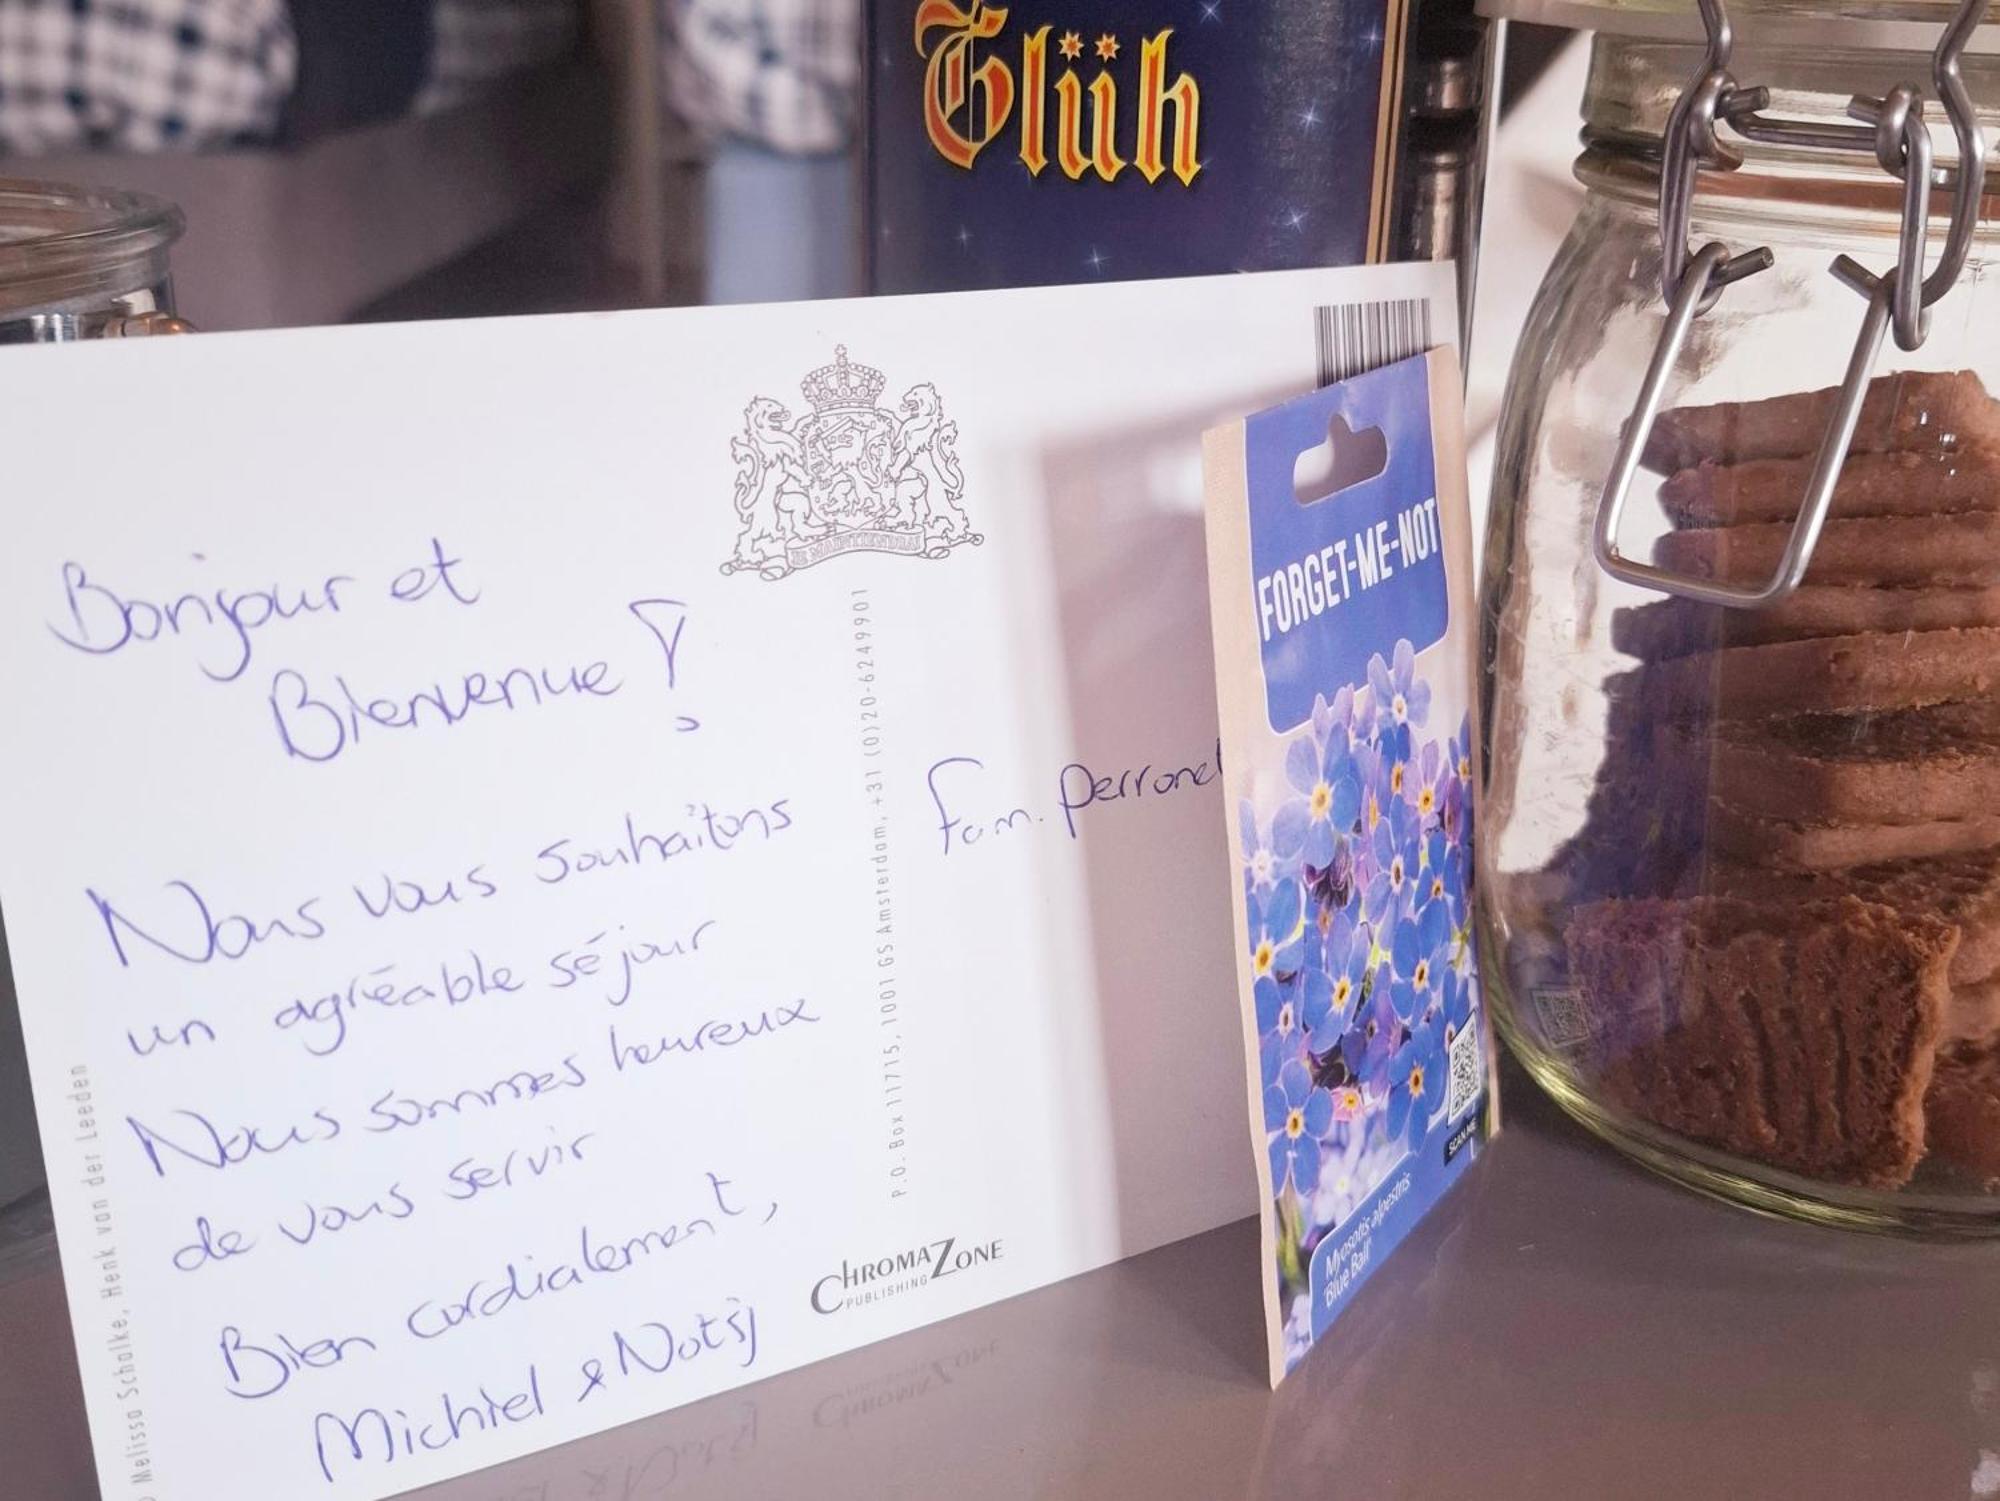 Glüh
JE MAINTIENDRAI
Bonjour et
Bienvenue!
Nous vous souhaitons
un agréable séjour
Nous sommes heureux
de vous servir
Bien cordialement,
Michiel & Notsj
© Melissa Scholke, Henk van der Leeden
P.O. Box 11715, 1001 GS Amsterdam, +31 (0)20-6249901
CHROMAZONE
PUBLISHING
Fam. Perronet
FORGET-ME-NOT
SCAN ME
Myosotis alpestris
'Blue Ball'